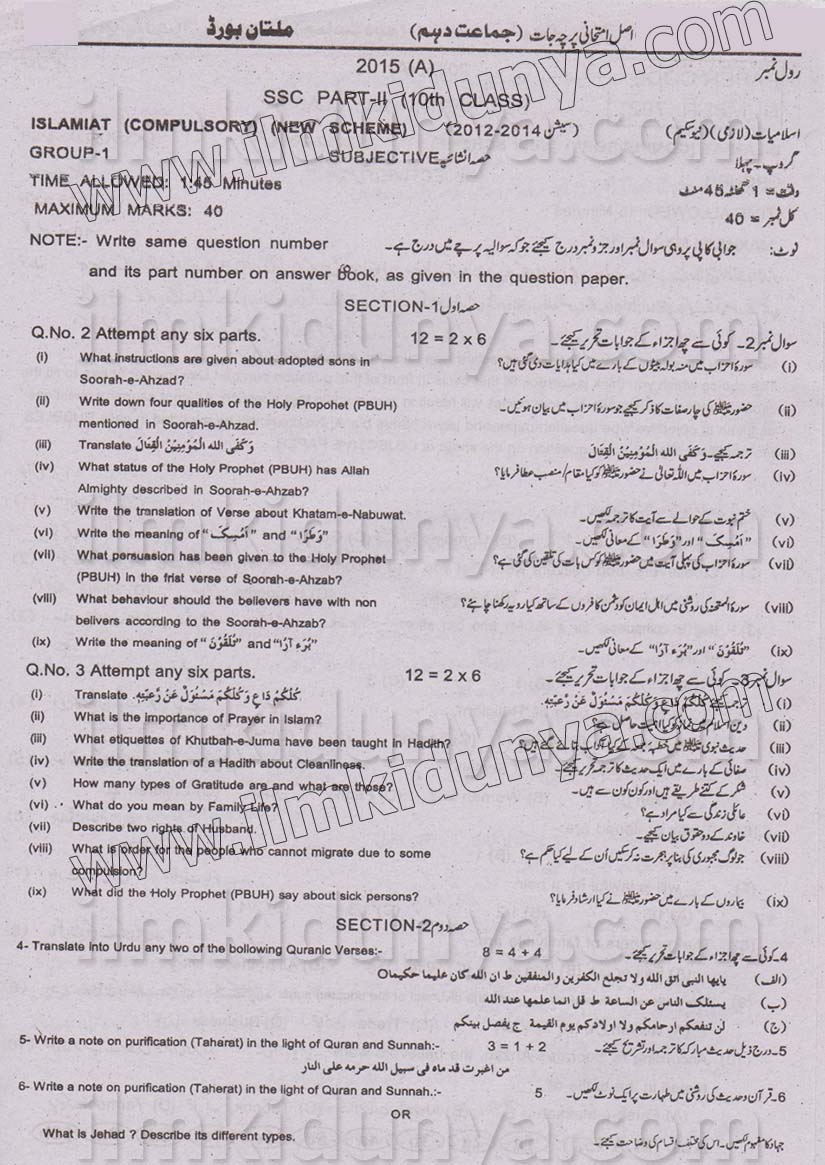 اصل امتحانی پرچہ جات (جماعت دہم) ملتان بورڈ
2015 (A) رول نمبر
SSC PART-II (10th CLASS)
ISLAMIAT (COMPULSORY) (NEW SCHEME) (سیشن 2014-2012) اسلامیات (لازمی) (نیو سکیم)
GROUP-1 SUBJECTIVE حصہ انشائیہ گروپ۔ پہلا
TIME ALLOWED: 1:45 Minutes وقت = 1 گھنٹہ 45 منٹ
MAXIMUM MARKS: 40 کل نمبر = 40
NOTE:- Write same question number نوٹ: جوابی کاپی پر وہی سوال نمبر اور جزو نمبر درج کیجئے جو کہ سوالیہ پرچے میں درج ہے۔
and its part number on answer book, as given in the question paper.
SECTION-1 حصہ اول
Q.No. 2 Attempt any six parts. 12 = 2 x 6 سوال نمبر 2۔ کوئی سے چھ اجزاء کے جوابات تحریر کیجئے۔
(i) What instructions are given about adopted sons in (i) سورۃ احزاب میں منہ بولے بیٹوں کے بارے میں کیا ہدایات دی گئی ہیں؟
Soorah-e-Ahzad?
(ii) Write down four qualities of the Holy Propohet (PBUH) (ii) حضور ﷺ کی چار صفات کا ذکر کیجیے جو سورۃ احزاب میں بیان ہوئیں۔
mentioned in Soorah-e-Ahzad.
(iii) Translate وَكَفَى الله الْمُؤْمِنِيْنَ الْقِتَالَ (iii) ترجمہ کیجیے۔ وَكَفَى الله الْمُؤْمِنِيْنَ الْقِتَالَ
(iv) What status of the Holy Prophet (PBUH) has Allah (iv) سورۃ احزاب میں اللہ تعالیٰ نے حضور ﷺ کو کیا مقام/منصب عطا فرمایا؟
Almighty described in Soorah-e-Ahzab?
(v) Write the translation of Verse about Khatam-e-Nabuwat. (v) ختم نبوت کے حوالے سے آیت کا ترجمہ لکھیں۔
(vi) Write the meaning of "اَمْسِکْ" and "وَطَرًا" (vi) "اَمْسِکْ" اور "وَطَرًا" کے معانی لکھیں۔
(vii) What persuasion has been given to the Holy Prophet (vii) سورۃ احزاب کی پہلی آیت میں حضور ﷺ کو کس بات کی تلقین کی گئی ہے؟
(PBUH) in the frist verse of Soorah-e-Ahzab?
(viii) What behaviour should the believers have with non (viii) سورۃ الممتحنہ کی روشنی میں اہل ایمان کو دشمن کافروں کے ساتھ کیا رویہ رکھنا چاہئے؟
belivers according to the Soorah-e-Ahzab?
(ix) Write the meaning of "تُلْقُوْنَ" and "بُرَءٰٓؤُا" (ix) "تُلْقُوْنَ" اور "بُرَءٰٓؤُا" کے معانی لکھیں۔
Q.No. 3 Attempt any six parts. 12 = 2 x 6 سوال نمبر 3۔ کوئی سے چھ اجزاء کے جوابات تحریر کیجئے۔
(i) Translate كُلُّكُمْ رَاعٍ وَكُلُّكُمْ مَسْئُوْلٌ عَنْ رَّعِيَّتِهٖ (i) ترجمہ کیجئے كُلُّكُمْ رَاعٍ وَكُلُّكُمْ مَسْئُوْلٌ عَنْ رَّعِيَّتِهٖ
(ii) What is the importance of Prayer in Islam? (ii) دین اسلام میں نماز کو کیا اہمیت حاصل ہے؟
(iii) What etiquettes of Khutbah-e-Juma have been taught in Hadith? (iii) حدیث نبوی ﷺ میں خطبہ جمعہ کے کیا آداب بتائے گئے ہیں؟
(iv) Write the translation of a Hadith about Cleanliness. (iv) صفائی کے بارے میں ایک حدیث کا ترجمہ تحریر کیجئے۔
(v) How many types of Gratitude are and what are those? (v) شکر کے کتنے طریقے ہیں اور کون کون سے ہیں۔
(vi) What do you mean by Family Life? (vi) عائلی زندگی سے کیا مراد ہے؟
(vii) Describe two rights of Husband. (vii) خاوند کے دو حقوق بیان کیجیے۔
(viii) What is order for the people who cannot migrate due to some (viii) جو لوگ مجبوری کی بنا پر ہجرت نہ کر سکیں اُن کے لیے کیا حکم ہے؟
compulsion?
(ix) What did the Holy Prophet (PBUH) say about sick persons? (ix) بیماروں کے بارے میں حضور ﷺ نے کیا ارشاد فرمایا؟
SECTION-2 حصہ دوم
4- Translate into Urdu any two of the bollowing Quranic Verses:- 8 = 4 + 4 4۔ کوئی سے چھ اجزاء کے جوابات تحریر کیجئے۔
(الف) يايها النبى اتق الله ولا تجلع الكفرين والمنفقين ط ان الله كان عليما حكيما٥
(ب) يسئلك الناس عن الساعة ط قل انما علمها عند الله
(ج) لن تنفعكم ارحامكم ولا اولادكم يوم القيمة ج يفصل بينكم
5- Write a note on purification (Taherat) in the light of Quran and Sunnah:- 3 = 1 + 2 5۔ درج ذیل حدیث مبارکہ کا ترجمہ اور تشریح کیجئے۔
من اغبرت قد ماه فى سبيل الله حرمه على النار
6- Write a note on purification (Taherat) in the light of Quran and Sunnah.:- 5 6۔ قرآن و حدیث کی روشنی میں طہارت پر ایک نوٹ لکھیں۔
OR
What is Jehad ? Describe its different types. جہاد کا مفہوم لکھیں۔ اس کی مختلف اقسام کی وضاحت کیجئے۔
www.ilmkidunya.com
www.ilmkidunya.com
ilmkidunya.com
ilmkidunya.com
ilmkidunya.com
ilmkidunya.com
ilmkidunya.com
ilmkidunya.com